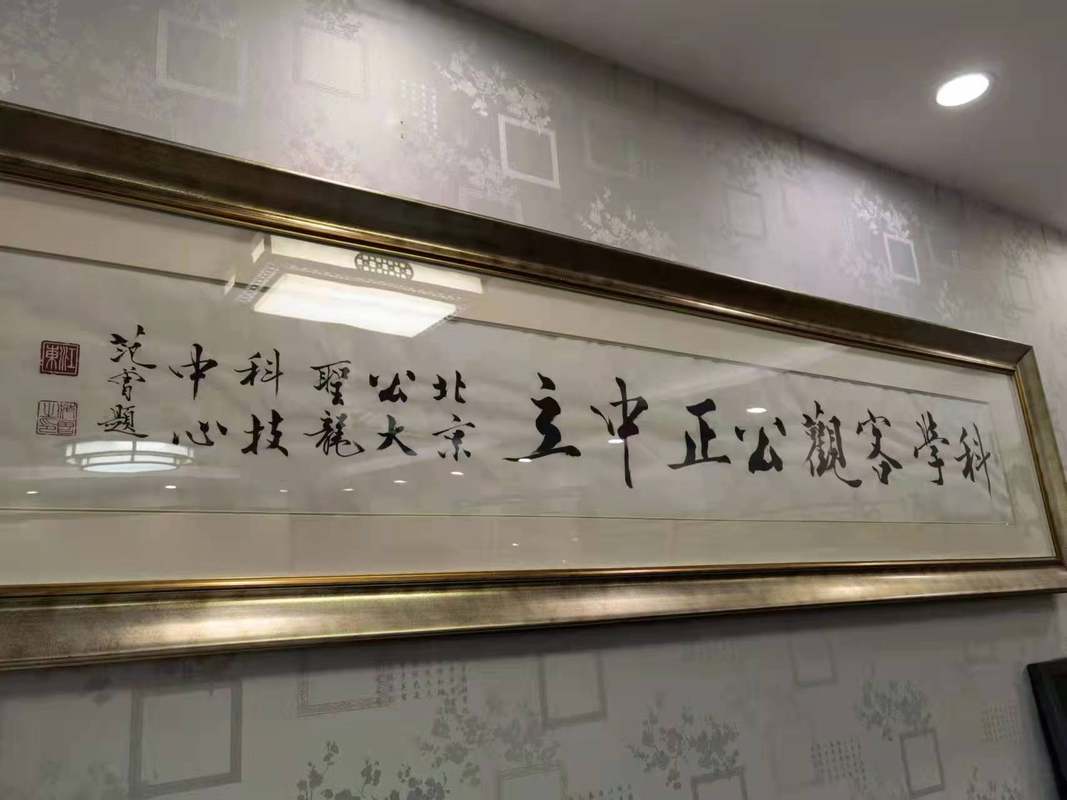 科學客觀公正中立
北京
公大
聖龍
科技
中心
范曾題
江東